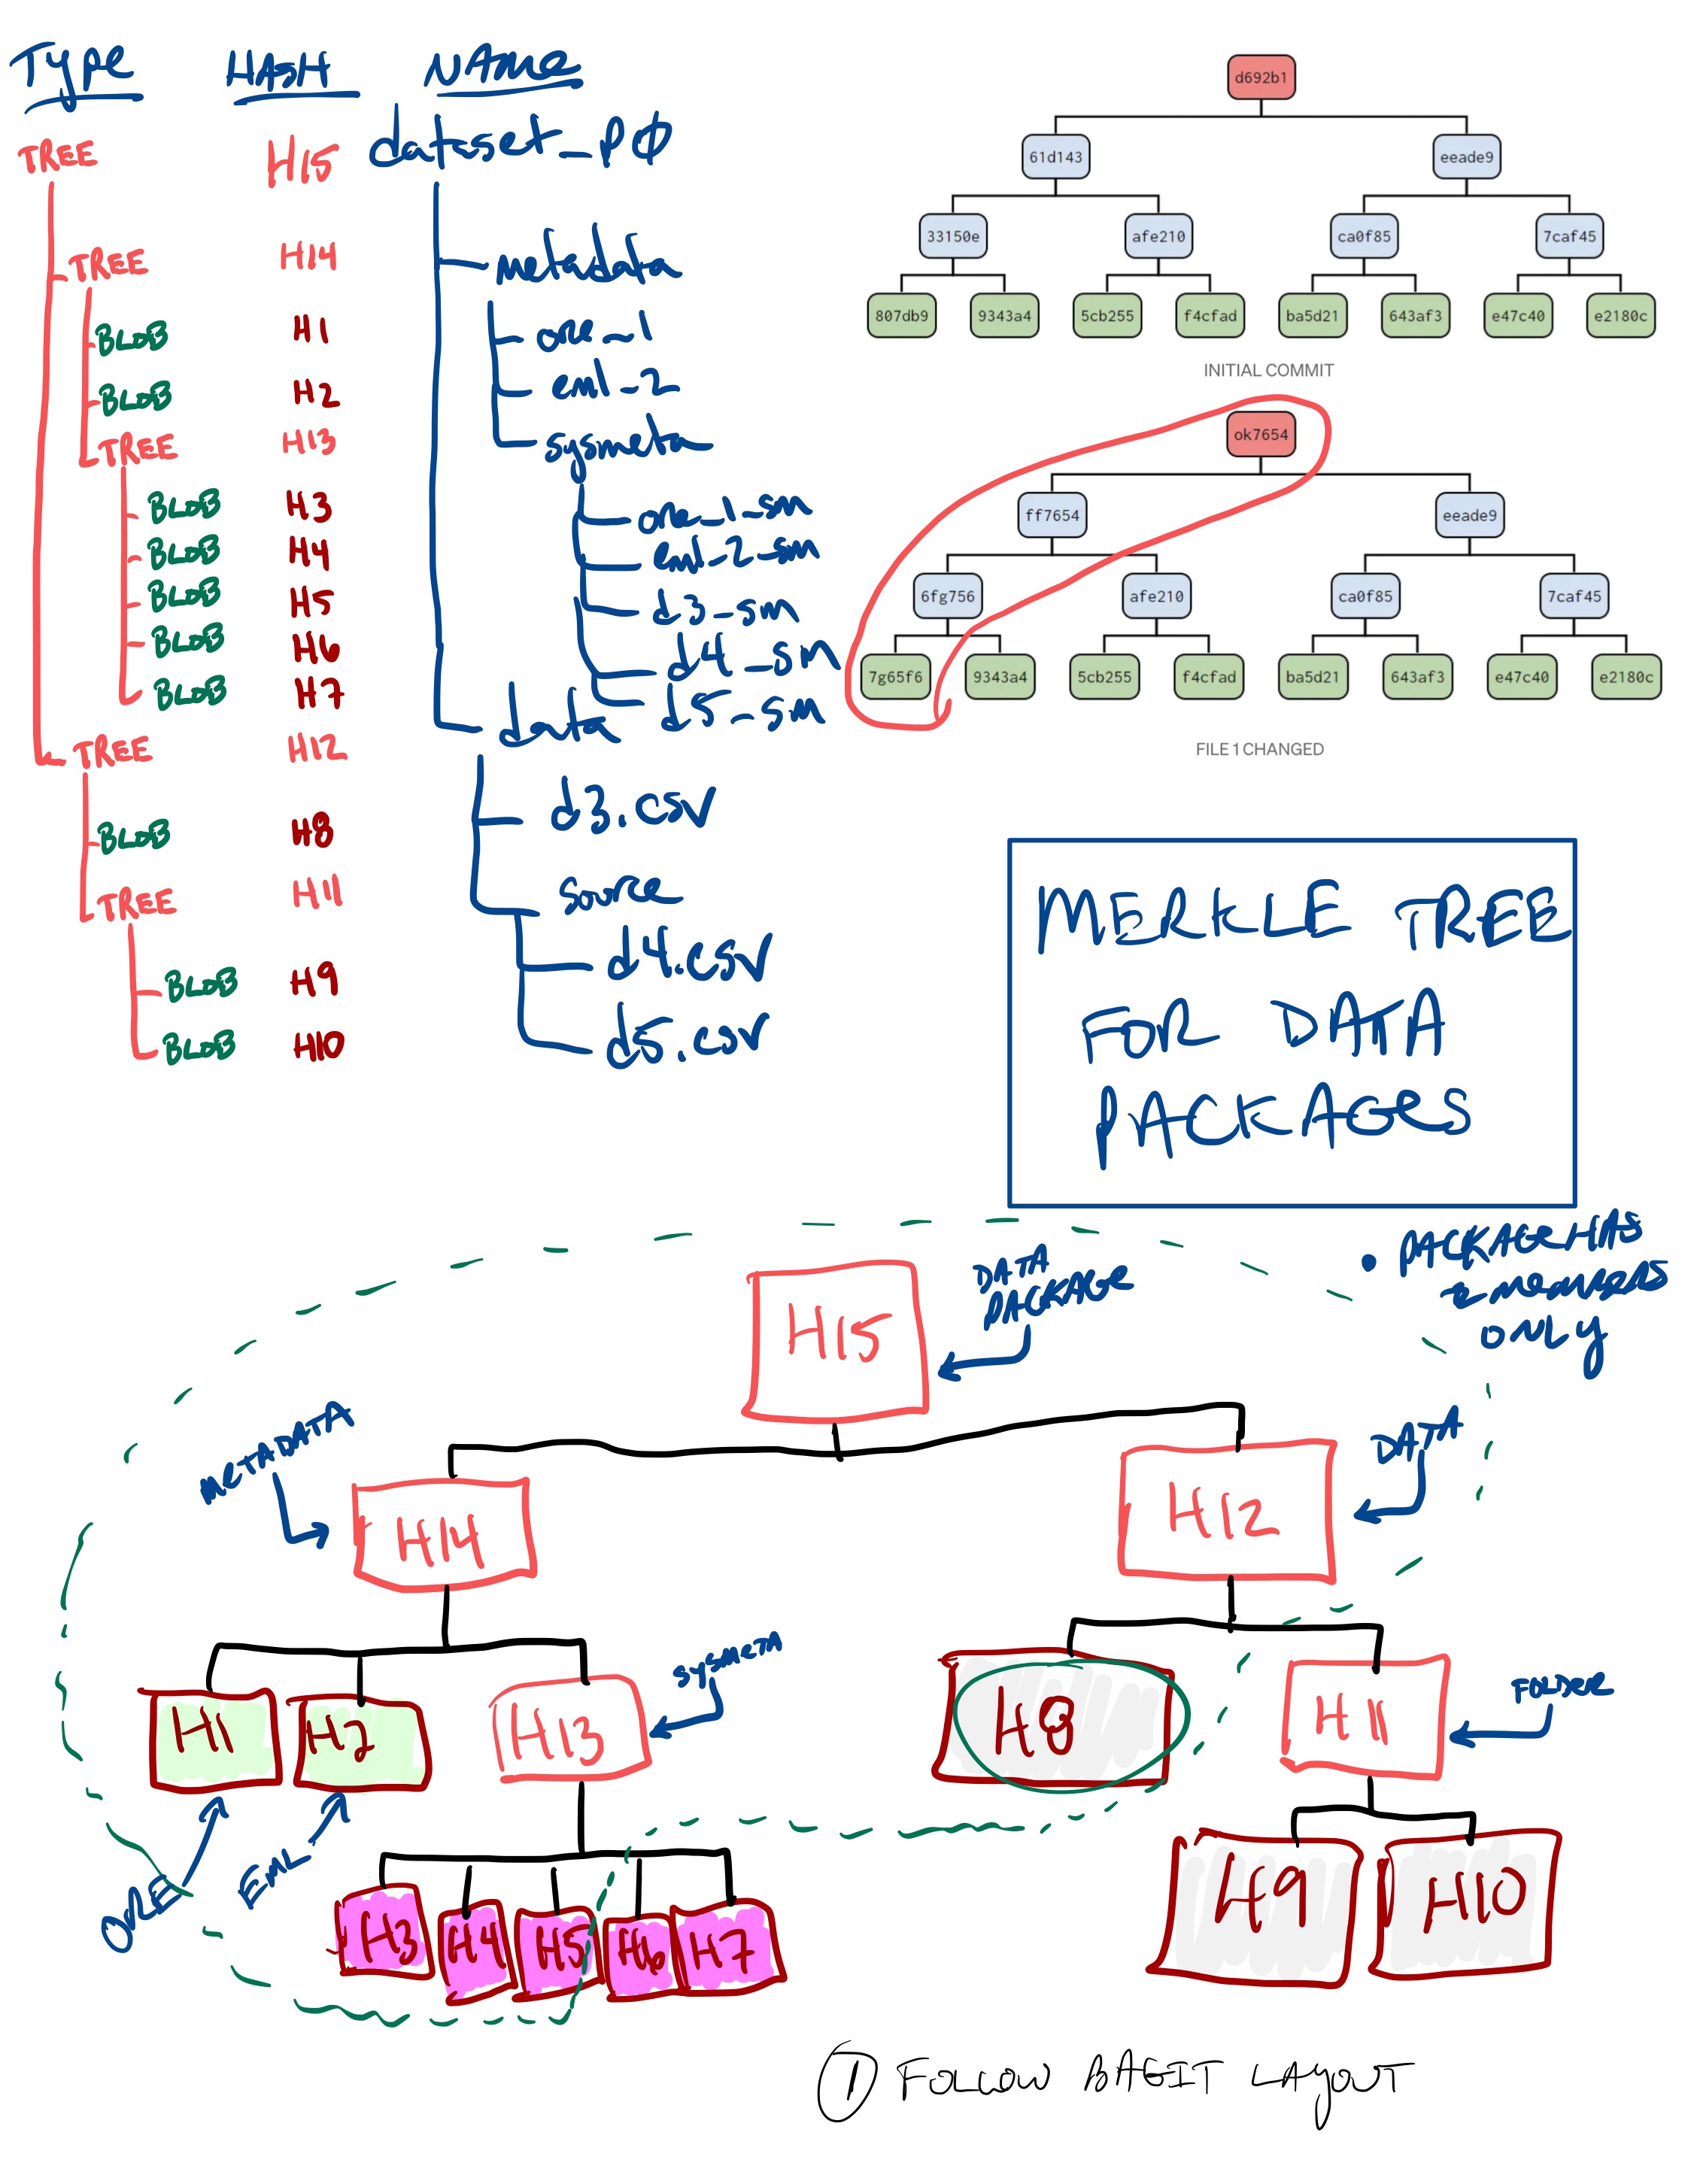 TYPE HASH NAME
TREE H15 dataset_pø
TREE H14 metadata
BLOB H1 ore_1
BLOB H2 eml_2
TREE H13 sysmeta
BLOB H3 ore_1_sm
BLOB H4 eml_2_sm
BLOB H5 d3_sm
BLOB H6 d4_sm
BLOB H7 d5_sm
TREE H12 data
BLOB H8 d3.csv
TREE H11 source
BLOB H9 d4.csv
BLOB H10 d5.csv
d692b1
61d143 eeade9
33150e afe210 ca0f85 7caf45
807db9 9343a4 5cb255 f4cfad ba5d21 643af3 e47c40 e2180c
INITIAL COMMIT
ok7654
ff7654 eeade9
6fg756 afe210 ca0f85 7caf45
7g65f6 9343a4 5cb255 f4cfad ba5d21 643af3 e47c40 e2180c
FILE 1 CHANGED
MERKLE TREE
FOR DATA
PACKAGES
• PACKAGE HAS
2 MEMBERS
ONLY
DATA
PACKAGE
H15
METADATA
DATA
H14 H12
SYSMETA
FOLDER
H1 H2 H13 H8 H11
ORE EML
H3 H4 H5 H6 H7 H9 H10
1 FOLLOW BAGIT LAYOUT